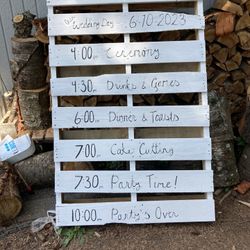 Wedding Day 6-10-2023
4:00pm Ceremony
4:30pm Drinks & Games
6:00pm Dinner & Toasts
7:00pm Cake Cutting
7:30pm Party Time!
10:00pm Party's Over